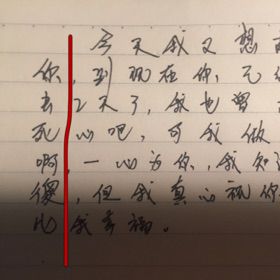 今天我又想
你，到现在你已
去2天了，我也曾
死心吧，可我做
啊，一心为你，我知
但我真心祝你
比我幸福。